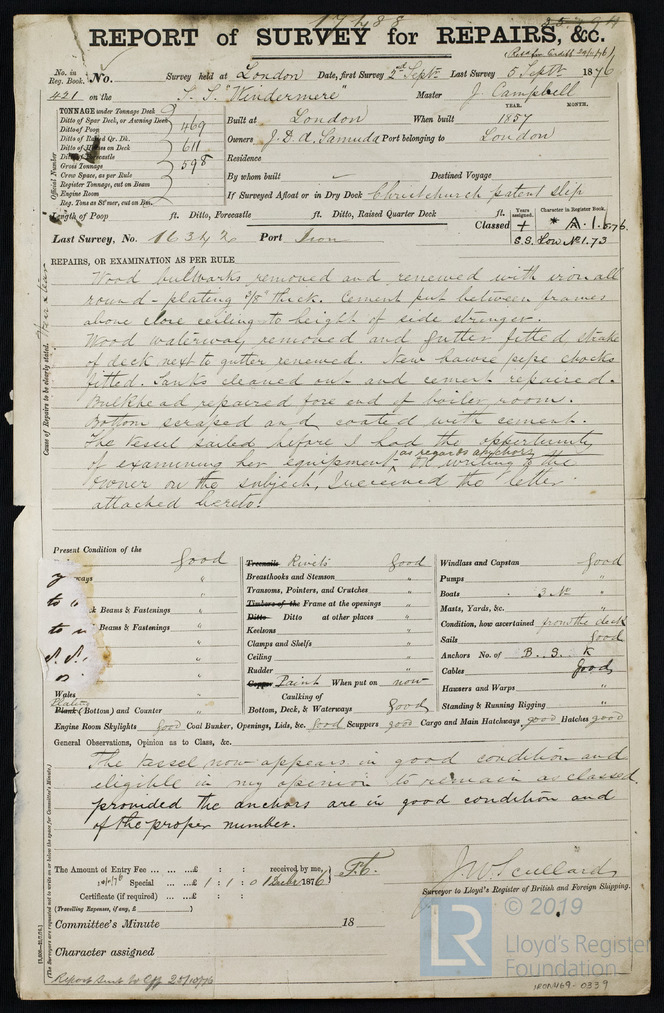 17488
REPORT of SURVEY for REPAIRS, &c.
No. in Reg. Book. No. Survey held at London Date, first Survey 2d Septr. Last Survey 5 Septr 1876
421 on the S.S. "Windermere" Master J. Campbell
TONNAGE under Tonnage Deck
Ditto of Spar Deck, or Awning Deck
Ditto of Poop 469
Ditto of Raised Qr. Dk.
Ditto of Houses on Deck 611
Ditto of Forecastle
Gross Tonnage 598
Crew Space, as per Rule
Register Tonnage, cut on Beam
Engine Room
Reg. Tons as St'mer, cut on Bm.
Official Number
YEAR. MONTH.
Built at London When built 1857
Owners J. D. A. Samuda Port belonging to London
Residence
By whom built Destined Voyage
If Surveyed Afloat or in Dry Dock Christchurch patent slip
Length of Poop ft. Ditto, Forecastle ft. Ditto, Raised Quarter Deck ft.
Classed
Years assigned. Character in Register Book.
+ * A. 1.
S.S. Lon No 1.73
Last Survey, No. 16342 Port Iron
REPAIRS, OR EXAMINATION AS PER RULE
Cause of Repairs to be clearly stated.
Wood bulwarks removed and renewed with iron all
round - plating 3/8" thick. Cement put between frames
above close ceiling to height of side stringer.
Wood waterway removed and gutter fitted, strake
of deck next to gutter renewed. New hawse pipe chocks
fitted. Tanks cleaned out and cement repaired.
Bulkhead repaired fore end of boiler room.
Bottom scraped and coated with cement.
The vessel sailed before I had the opportunity
of examining her equipment as regards anchors, on writing to the
owner on the subject, I received the letter
attached hereto.
Present Condition of the
Good
Beams & Fastenings "
Beams & Fastenings "
Wales "
Plating
Plank (Bottom) and Counter "
Treenails Rivets Good
Breasthooks and Stemson "
Transoms, Pointers, and Crutches "
Timbers of the Frame at the openings "
Ditto Ditto at other places "
Keelsons "
Clamps and Shelfs "
Ceiling "
Rudder "
Copper Paint When put on now
Caulking of
Bottom, Deck, & Waterways Good
Windlass and Capstan Good
Pumps "
Boats 3 No "
Masts, Yards, &c. "
Condition, how ascertained from the deck
Sails Good
Anchors No. of B. S. K
Cables Good
Hawsers and Warps "
Standing & Running Rigging "
Engine Room Skylights Good Coal Bunker, Openings, Lids, &c. Good Scuppers good Cargo and Main Hatchways good Hatches good
General Observations, Opinion as to Class, &c.
The vessel now appears in good condition and
eligible in my opinion to remain as classed
provided the anchors are in good condition and
of the proper number.
The Amount of Entry Fee ... ... ...£ : : received by me,
Special ... ...£ 1 : 1 : 0 1876
Certificate (if required) ... ...£ : :
(Travelling Expenses, if any, £ )
J. W. Scullard
Surveyor to Lloyd's Register of British and Foreign Shipping.
Committee's Minute 18
Character assigned
(The Surveyors are requested not to write on or below the space for Committee's Minute.)
Report sent to Off 20/10/76
LR
© 2019
Lloyd's Register
Foundation
IRON469-0339